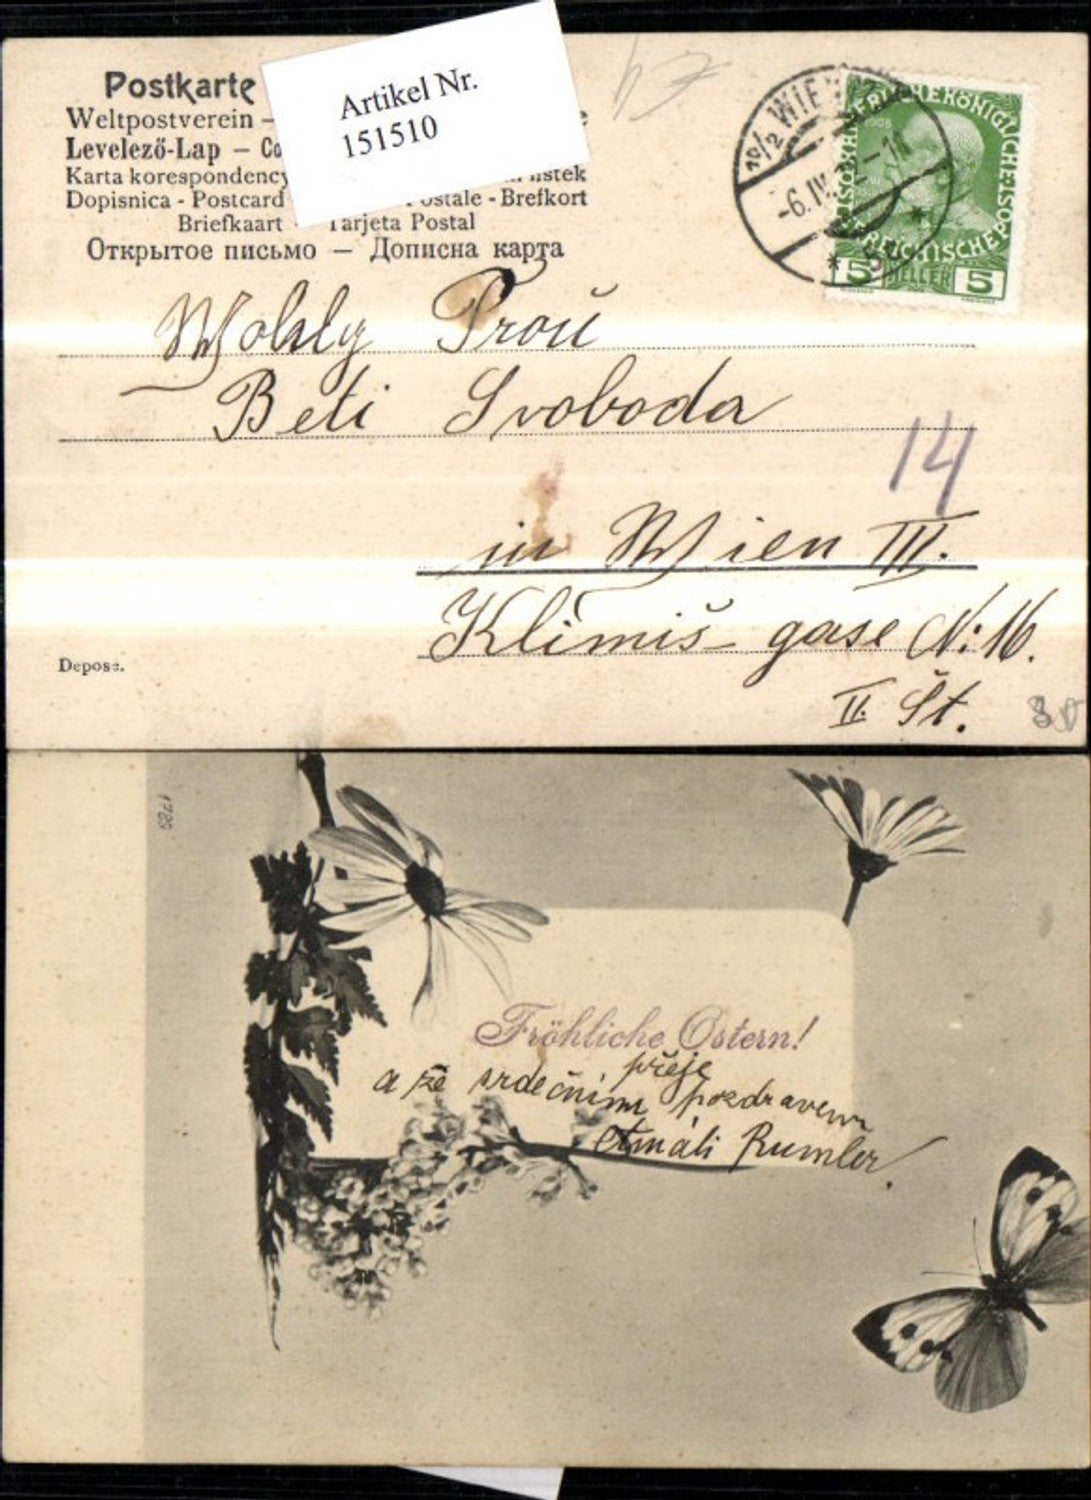 Postkarte
Artikel Nr.
151510
Weltpostverein –
Levelező-Lap – Co
Karta korespondency
Dopisnica - Postcard ostale - Brefkort
Briefkaart – Tarjeta Postal
Открытое письмо — Дописна карта
10/2 WIEN
-6.IV.12-1
KAISERLICHE KÖNIGLICHE ÖSTERREICHISCHE POST
1908
5 HELLER 5
Beti Svoboda
14
in Wien III.
Klimiš gase N: 16.
II. Št.
Depose.
1785
Fröhliche Ostern!
přeje
a ze srdečním pozdravem
Amáli Rumler.